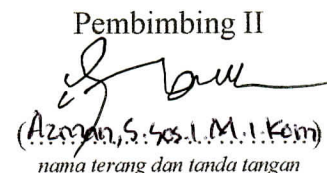 Pembimbing II
(Azman, S.Sos.I. M.I.Kom)
nama terang dan tanda tangan